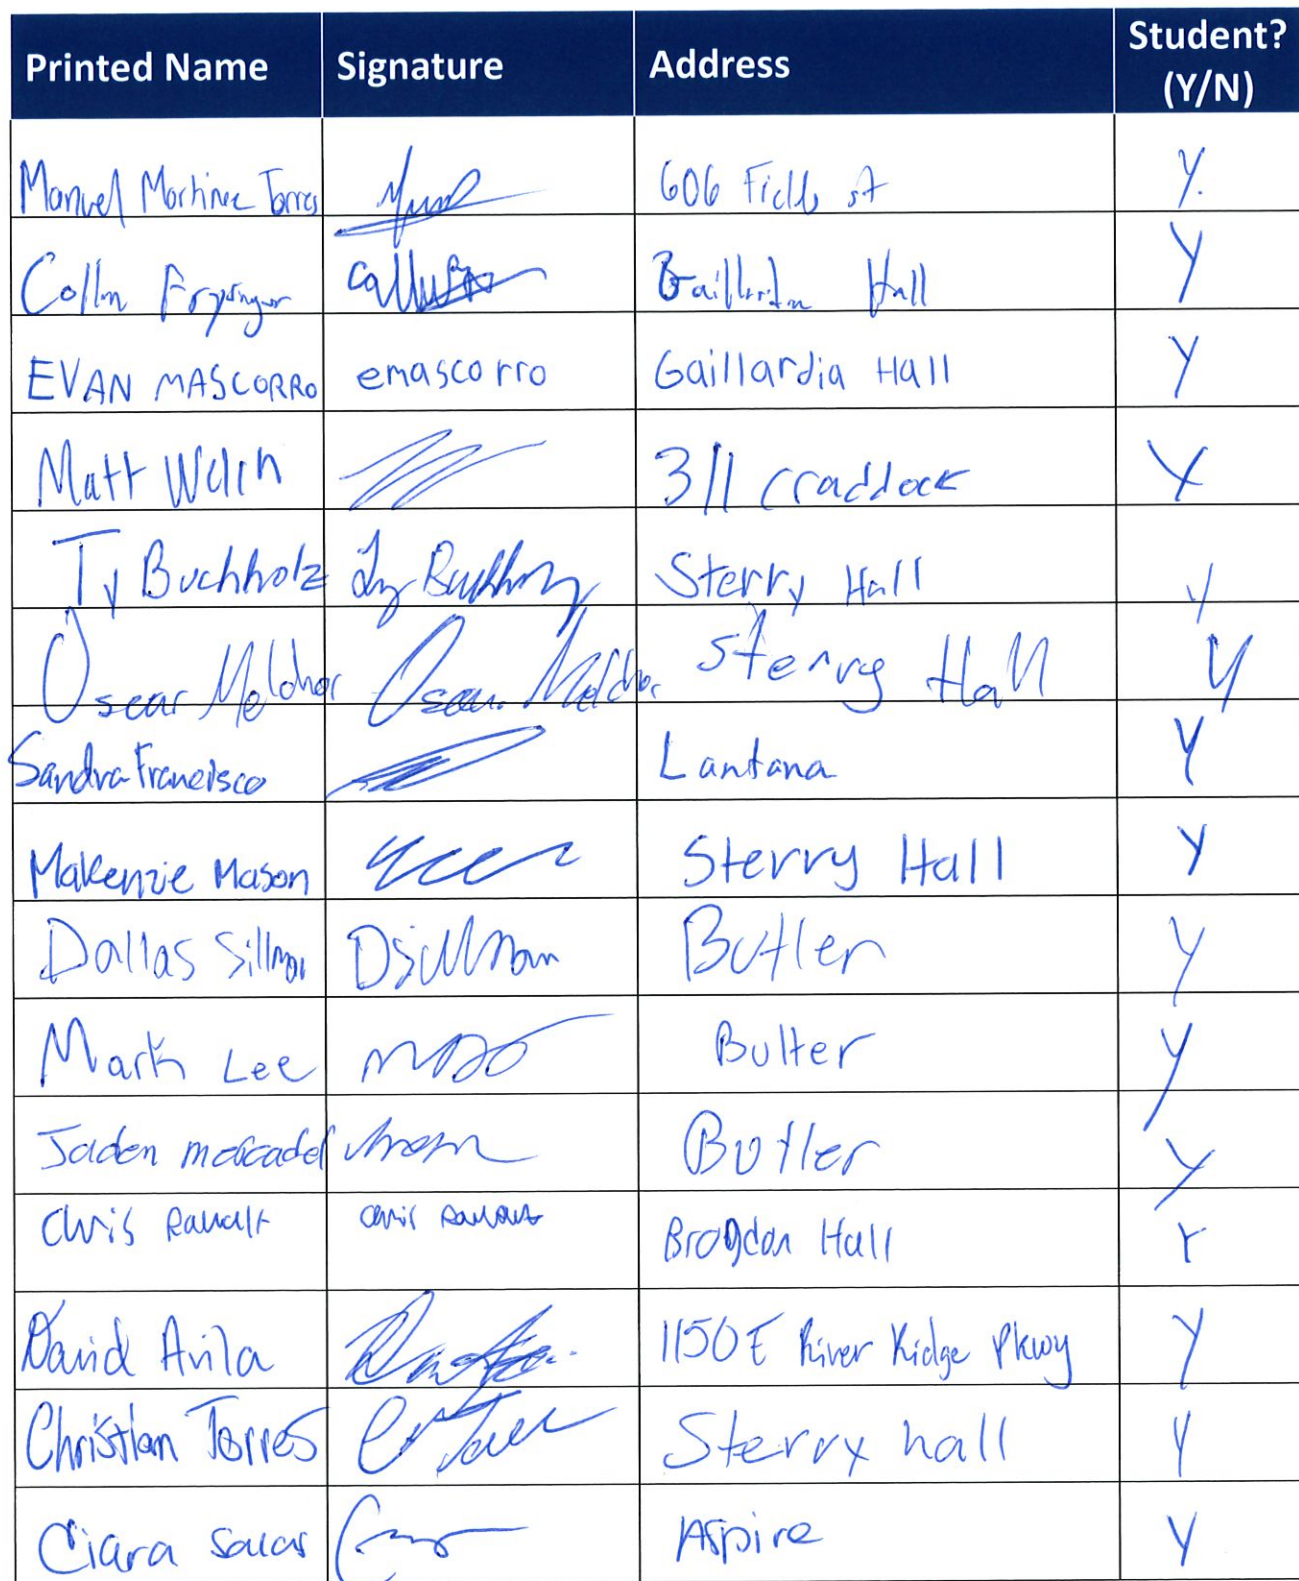 Printed Name Signature Address Student? (Y/N)
Manuel Martinez Torres 606 Fields st Y.
Collin Gaillardia Hall Y
EVAN MASCORRO emascorro Gaillardia Hall Y
Matt Welch 311 Craddock Y
Ty Buchholz Ty Buchholz Sterry Hall Y
Oscar Melchor Oscar Melchor Sterry Hall Y
Sandra Francisco Lantana Y
Makenzie Mason Sterry Hall Y
Dallas Sillman DSillman Butler Y
Mark Lee Bulter Y
Jaden Butler Y
Chris Chris Brogdon Hall Y
David Avila 1150 E River Ridge Pkwy Y
Christian Torres Sterry hall Y
Ciara Salas Aspire Y